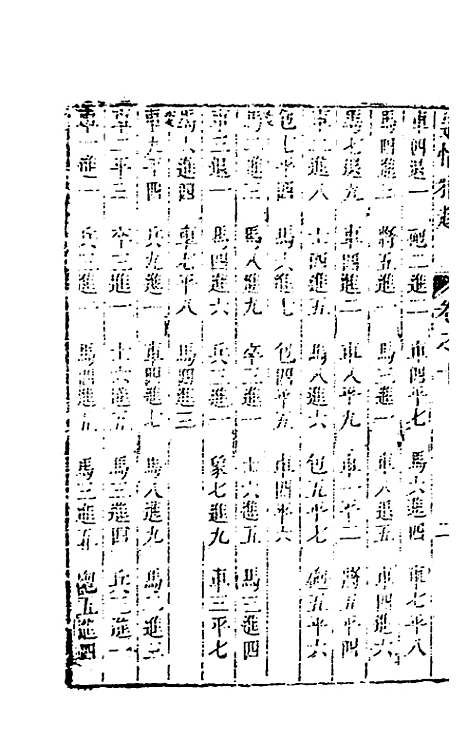 情雅趣 卷之十 二
車四退一 砲二進二 車四平七 馬六進四 車七平八
馬四進三 將五進一 馬三進一 車八退五 車四進六
馬七退九 車四進二 車八平九 車一平二 將五平四
車二進八 士四進五 馬八進六 包五平七 砲五平六
包七平四 馬六進七 包四平五 車四平六
馬二進三 馬八進九 卒三進一 士六進五 馬三進四
車三退一 馬四進六 兵三進一 象七進九 車三平七
馬六進四 車七平八 馬四進三
車九平四 兵九進一 車四進七 馬八進九 馬二進三
車二平三 卒三進一 士六進五 馬三進四 兵三進一
車一進一 兵三進一 馬四進五 馬三進五 砲五進四